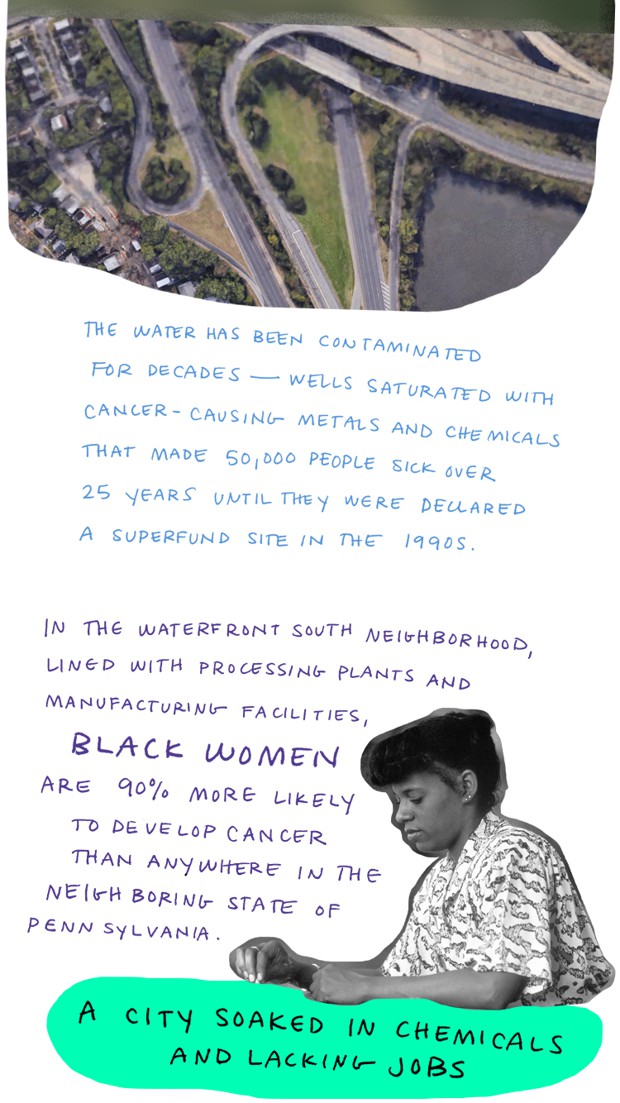 THE WATER HAS BEEN CONTAMINATED
FOR DECADES — WELLS SATURATED WITH
CANCER-CAUSING METALS AND CHEMICALS
THAT MADE 50,000 PEOPLE SICK OVER
25 YEARS UNTIL THEY WERE DECLARED
A SUPERFUND SITE IN THE 1990S.
IN THE WATERFRONT SOUTH NEIGHBORHOOD,
LINED WITH PROCESSING PLANTS AND
MANUFACTURING FACILITIES,
BLACK WOMEN
ARE 90% MORE LIKELY
TO DEVELOP CANCER
THAN ANYWHERE IN THE
NEIGHBORING STATE OF
PENNSYLVANIA.
A CITY SOAKED IN CHEMICALS
AND LACKING JOBS